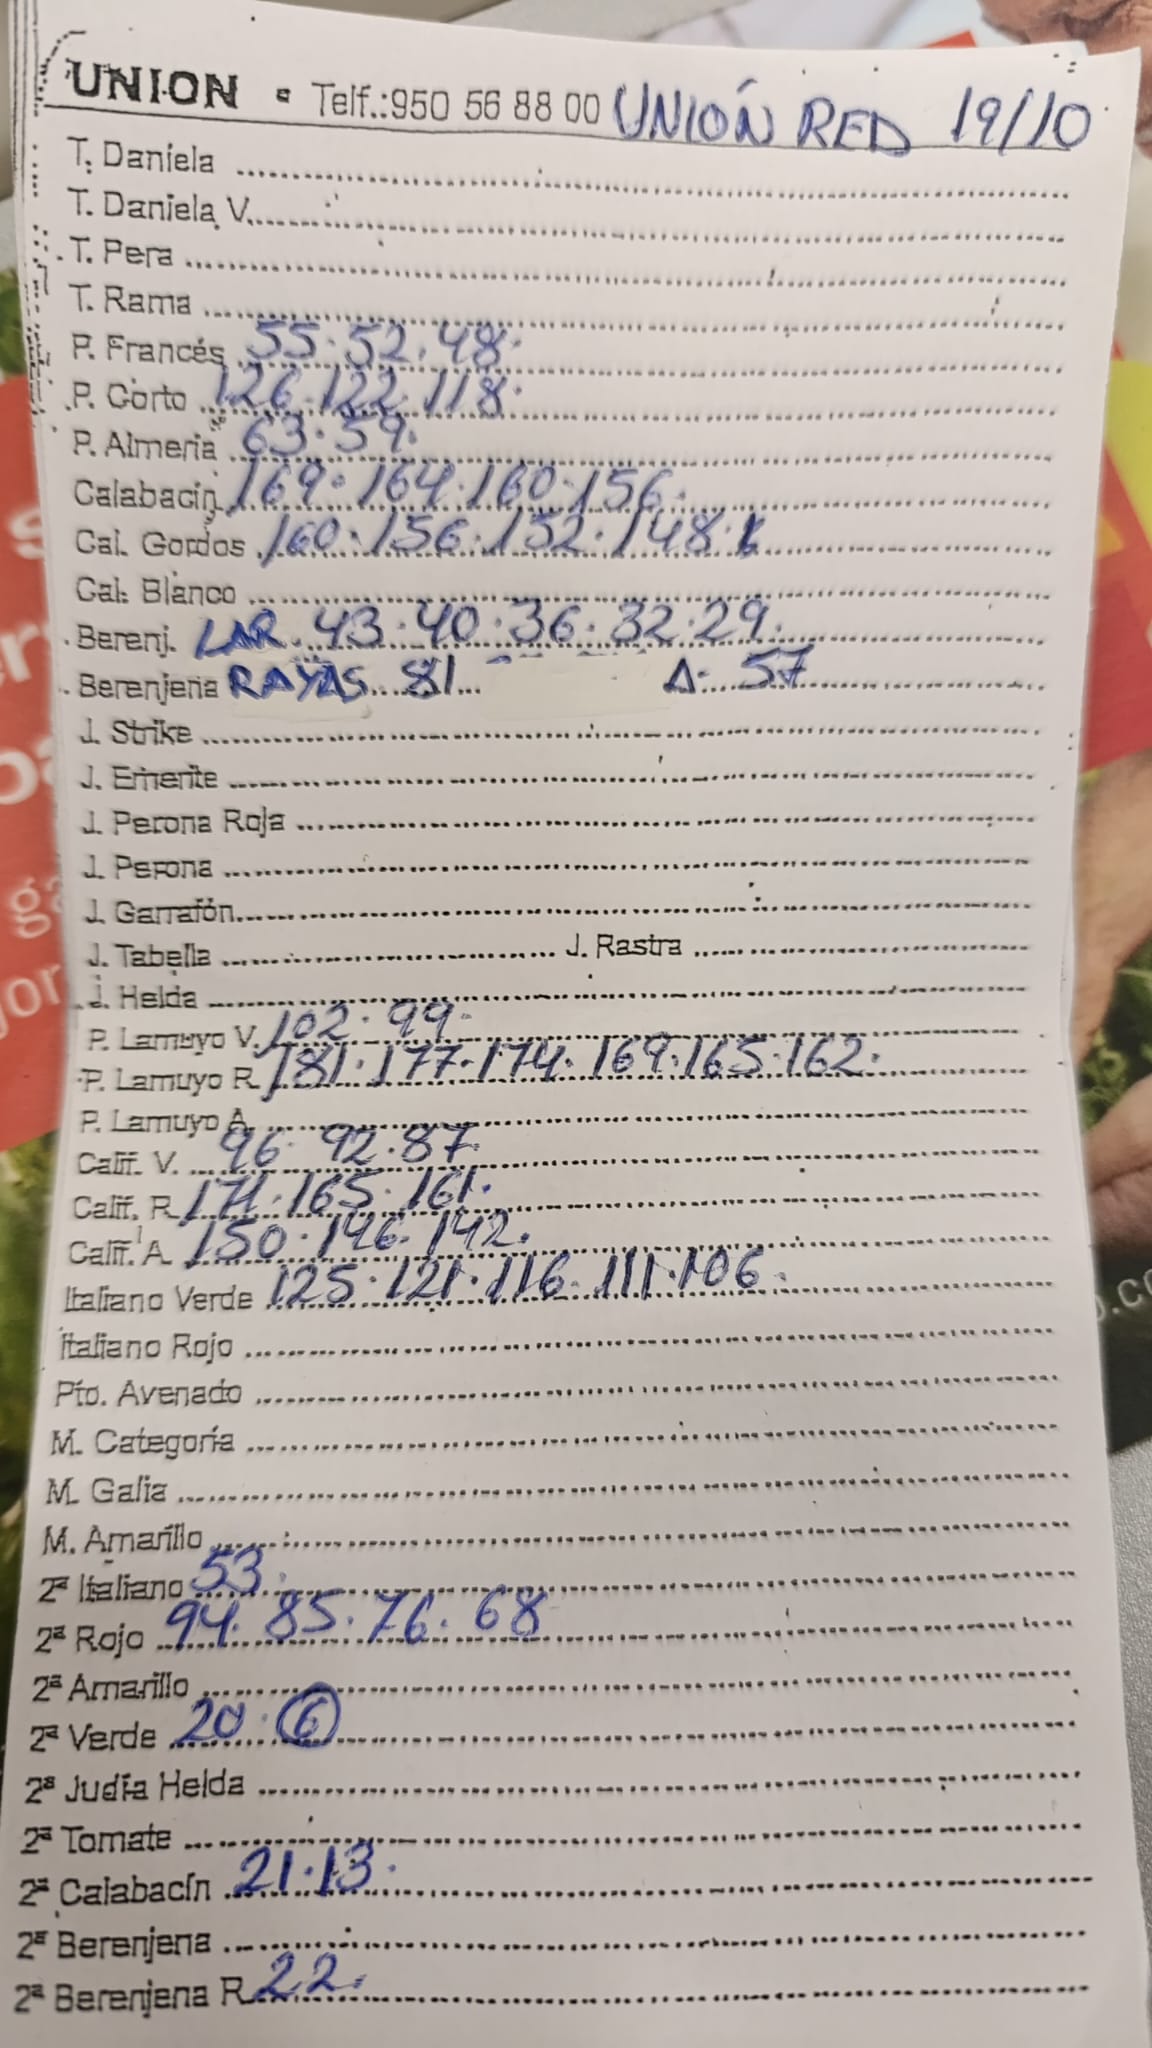 UNION - Telf.:950 56 88 00 UNIÓN RED 19/10
T. Daniela
T. Daniela V.
T. Pera
T. Rama
P. Francés 55. 52. 48.
P. Corto 126. 122. 118.
P. Almeria 63. 59.
Calabacin 169. 164. 160. 156.
Cal. Gordos 160. 156. 152. 148.
Cal. Blanco
Berenj. LAR. 43. 40. 36. 32. 29.
Berenjena RAYAS 81 A. 57
J. Strike
J. Emerite
J. Perona Roja
J. Perona
J. Garrafón
J. Tabella J. Rastra
J. Helda
P. Lamuyo V. 102. 99.
P. Lamuyo R. 181. 177. 174. 169. 165. 162.
P. Lamuyo A.
Calif. V. 96. 92. 87.
Calif. R. 171. 165. 161.
Calif. A. 150. 146. 142.
Italiano Verde 125. 121. 116. 111. 106.
Italiano Rojo
Pto. Avenado
M. Categoría
M. Galia
M. Amarillo
2ª Italiano 53.
2ª Rojo 94. 85. 76. 68
2ª Amarillo
2ª Verde 20. 6
2ª Judía Helda
2ª Tomate
2ª Calabacín 21. 13.
2ª Berenjena
2ª Berenjena R. 22.